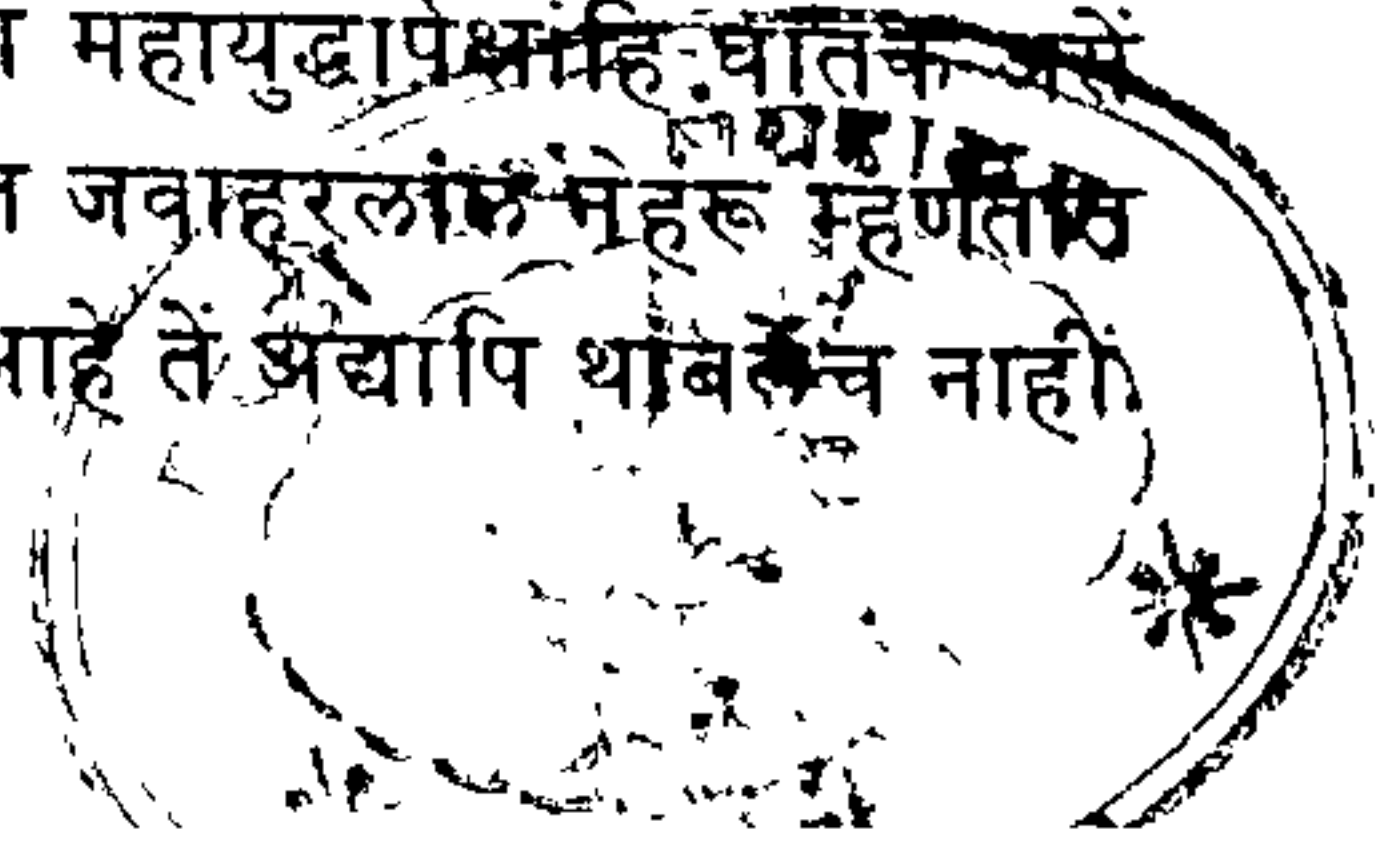 महायुद्धापेक्षांहि घातक असें
जवाहरलाल नेहरू म्हणतात
आहे तें अद्यापि थांबलेंच नाहीं